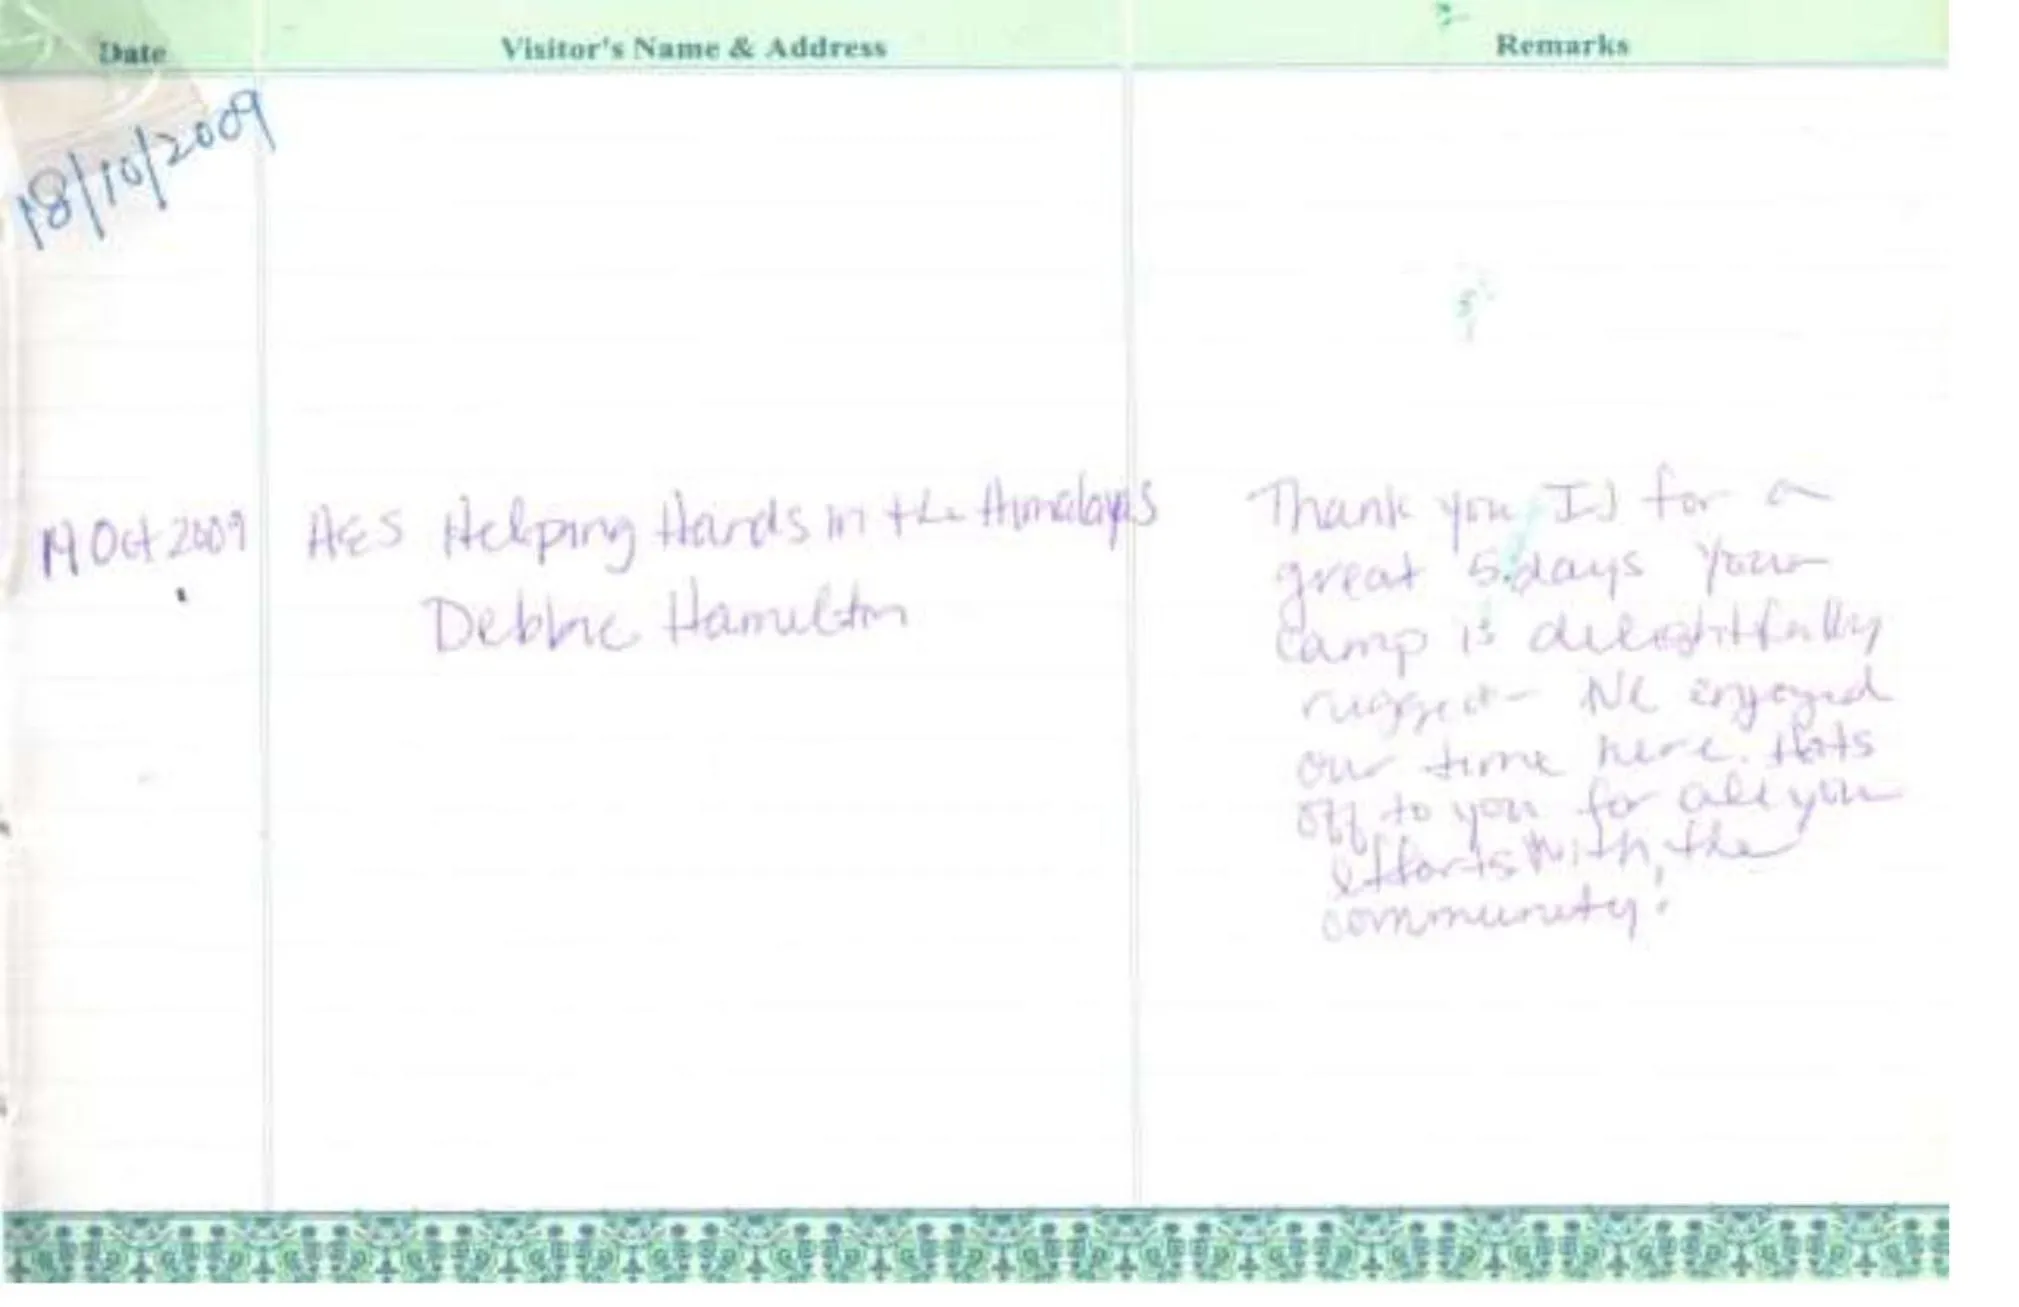 Date Visitor's Name & Address Remarks
18/10/2009
19 Oct 2009 AES Helping Hands in the Himalayas
Debbie Hamilton
Thank you for a
great 5 days your
camp is delightfully
rugged - We enjoyed
our time here. Hats
off to you for all your
efforts with the
community.